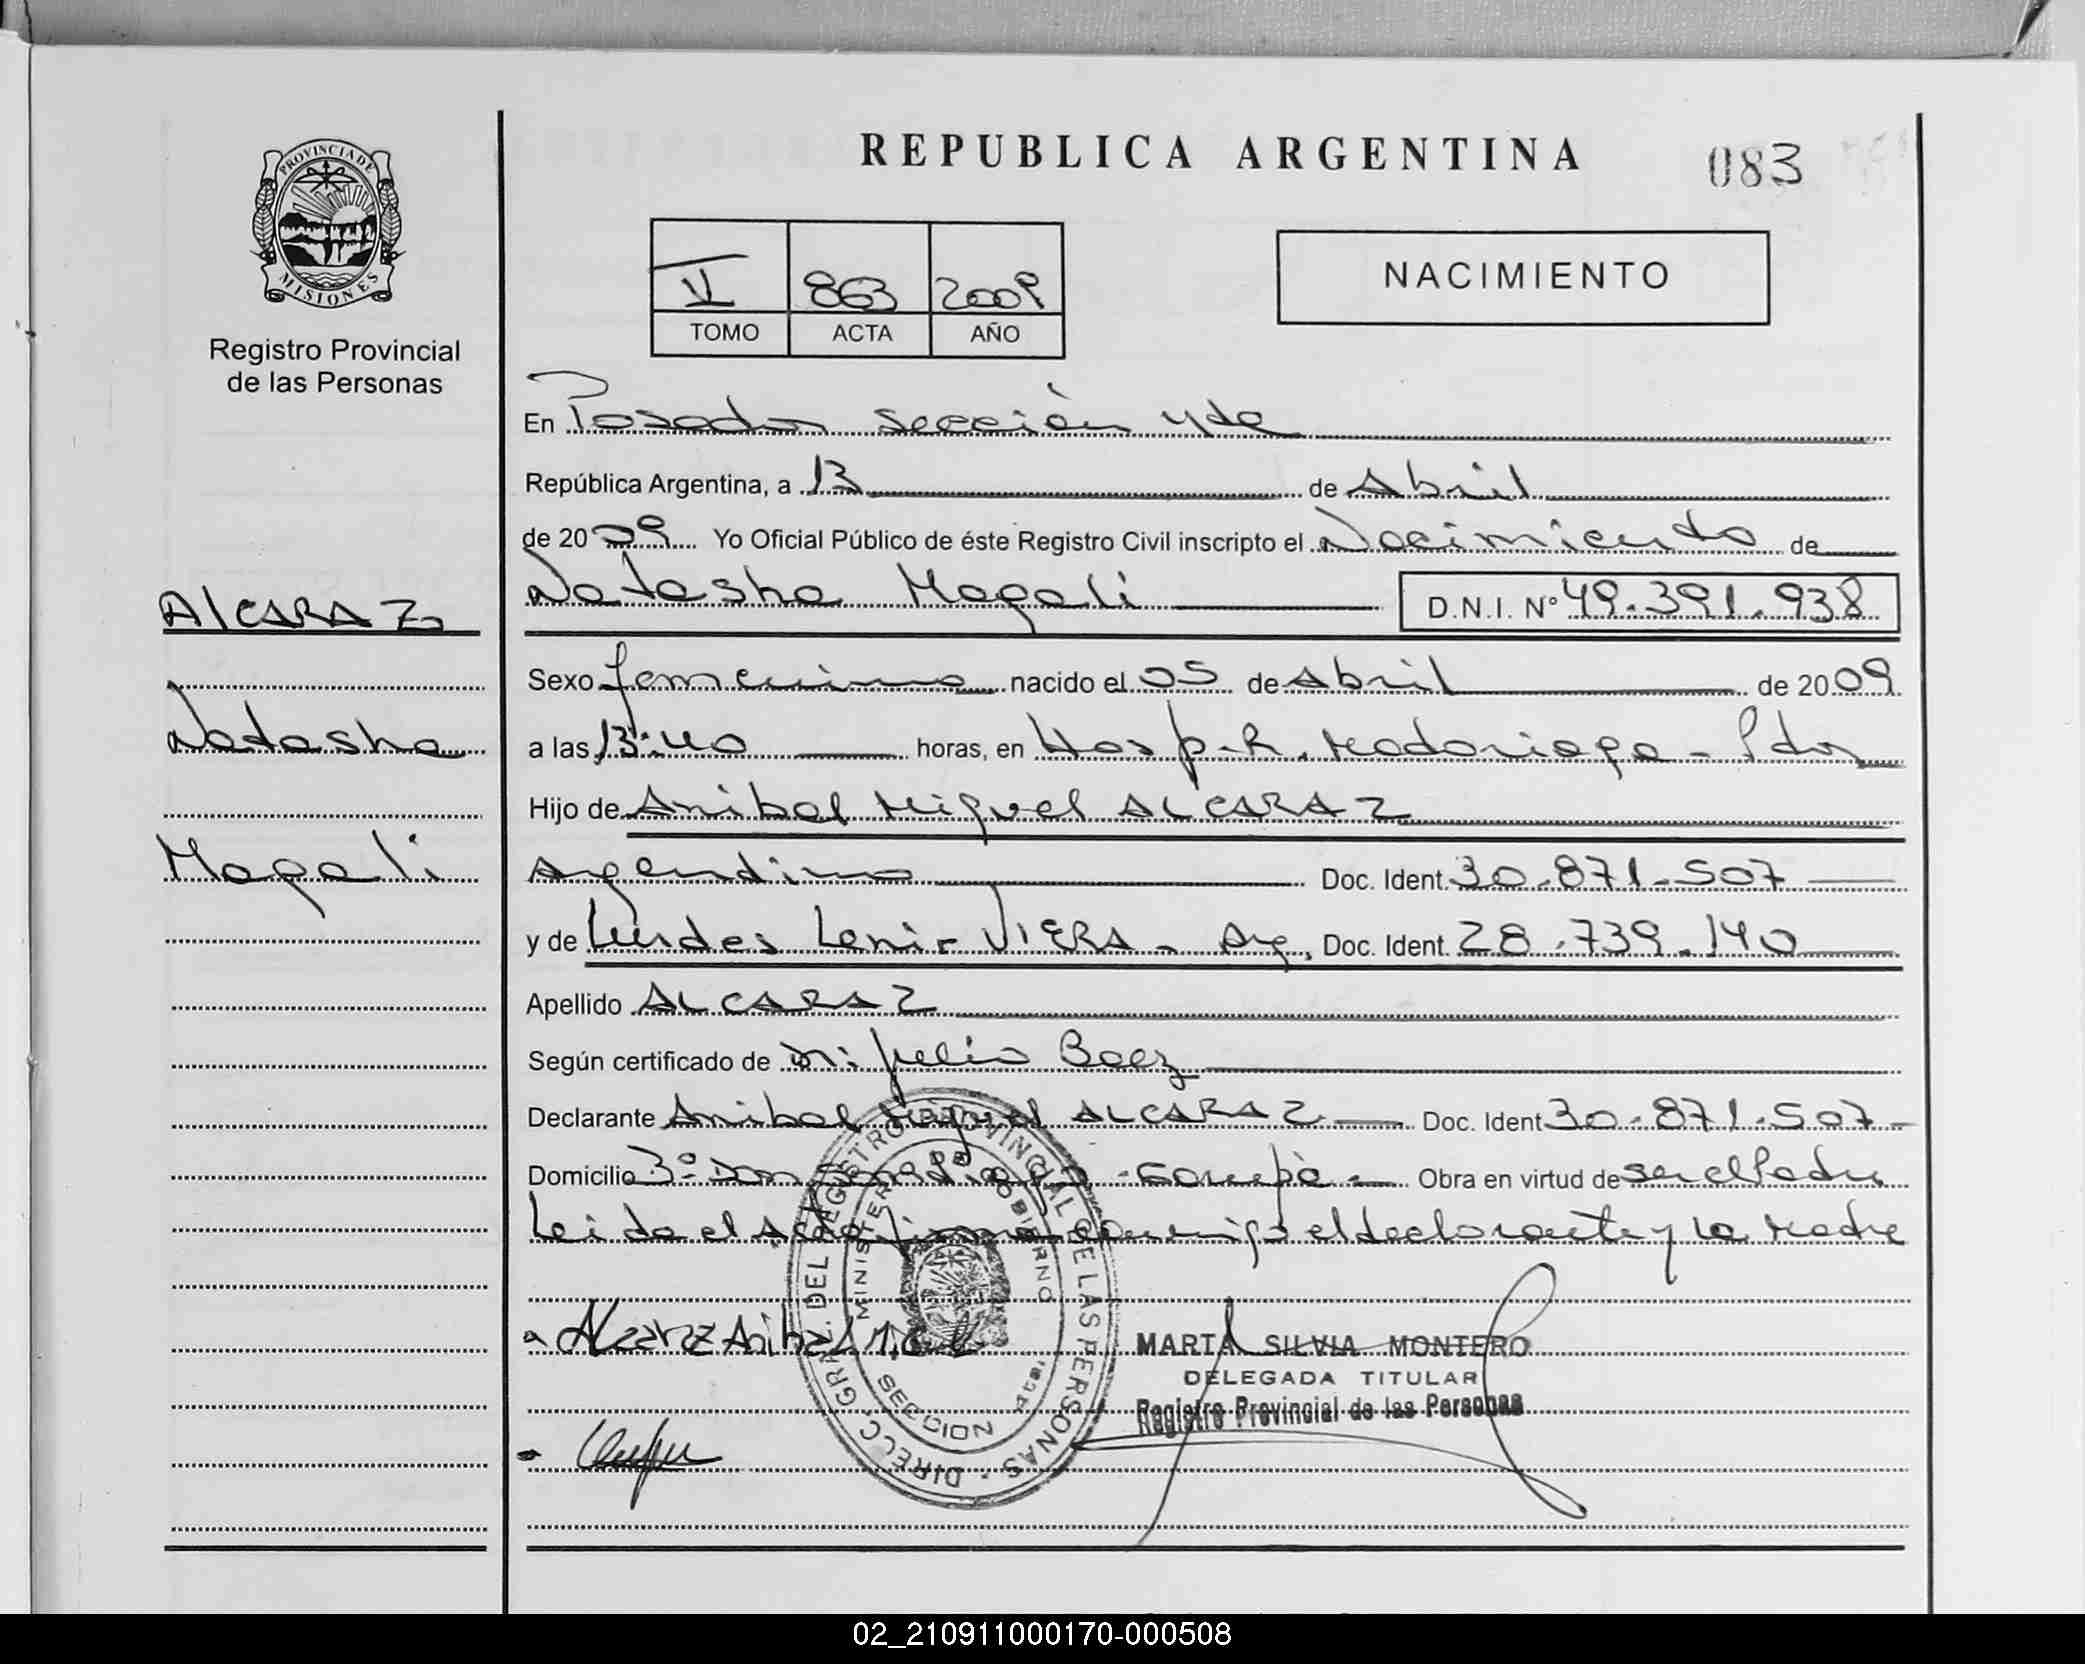 REPUBLICA ARGENTINA
083
PROVINCIA DE
MISIONES
Registro Provincial
de las Personas
VI 863 2009
TOMO ACTA AÑO
NACIMIENTO
En Posadas sección 4ta
República Argentina, a 13 de Abril
de 2009 Yo Oficial Público de éste Registro Civil inscripto el Nacimiento de
Natasha Magali D.N.I. Nº 49.391.938
ALCARAZ
Natasha
Magali
Sexo femenino nacido el 05 de Abril de 2009
a las 13:40 horas, en Hosp. R. Madariaga - Pdas
Hijo de Anibal Miguel ALCARAZ
Argentino Doc. Ident. 30.871.507
y de Lurdes Leni - VIERA - Arg. Doc. Ident. 28.739.140
Apellido ALCARAZ
Según certificado de Dr: Julio Baez
Declarante Anibal Miguel ALCARAZ Doc. Ident 30.871.507
Domicilio 3º Don Santiago - Garupá - Obra en virtud de ser el Padre
Leida el Acta firman conmigo el declarante y la Madre
Alcaraz Anibal
MARTA SILVIA MONTERO
DELEGADA TITULAR
Registro Provincial de las Personas
DIRECC. GRAL. DEL REGISTRO PROVINCIAL DE LAS PERSONAS
MINISTERIO DE GOBIERNO
SECCION 4ta.
02_210911000170-000508